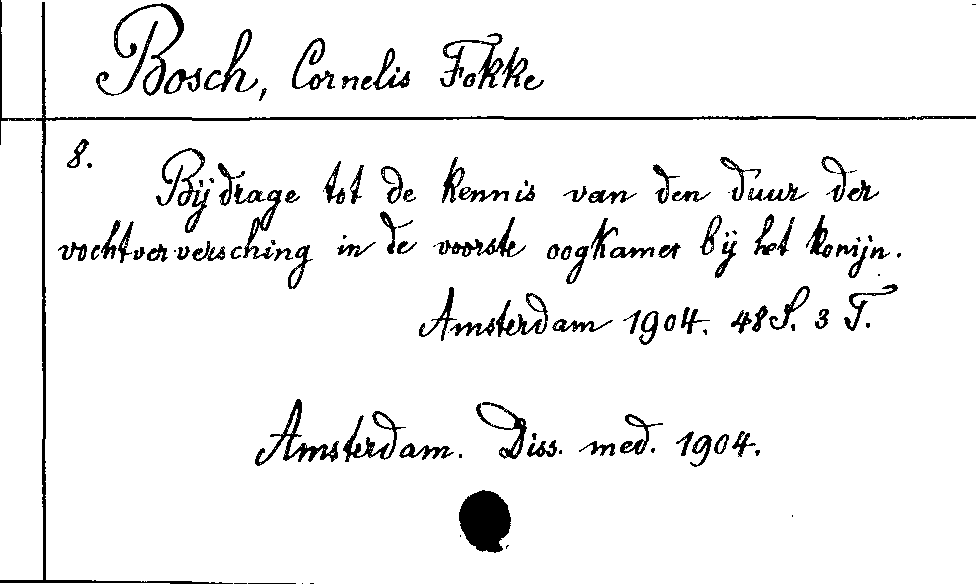 Bosch, Cornelis Fokke
8.
Bijdrage tot de kennis van den duur der
vochtverversching in de voorste oogkamer bij het konijn.
Amsterdam 1904. 48 S. 3 T.
Amsterdam. Diss. med. 1904.